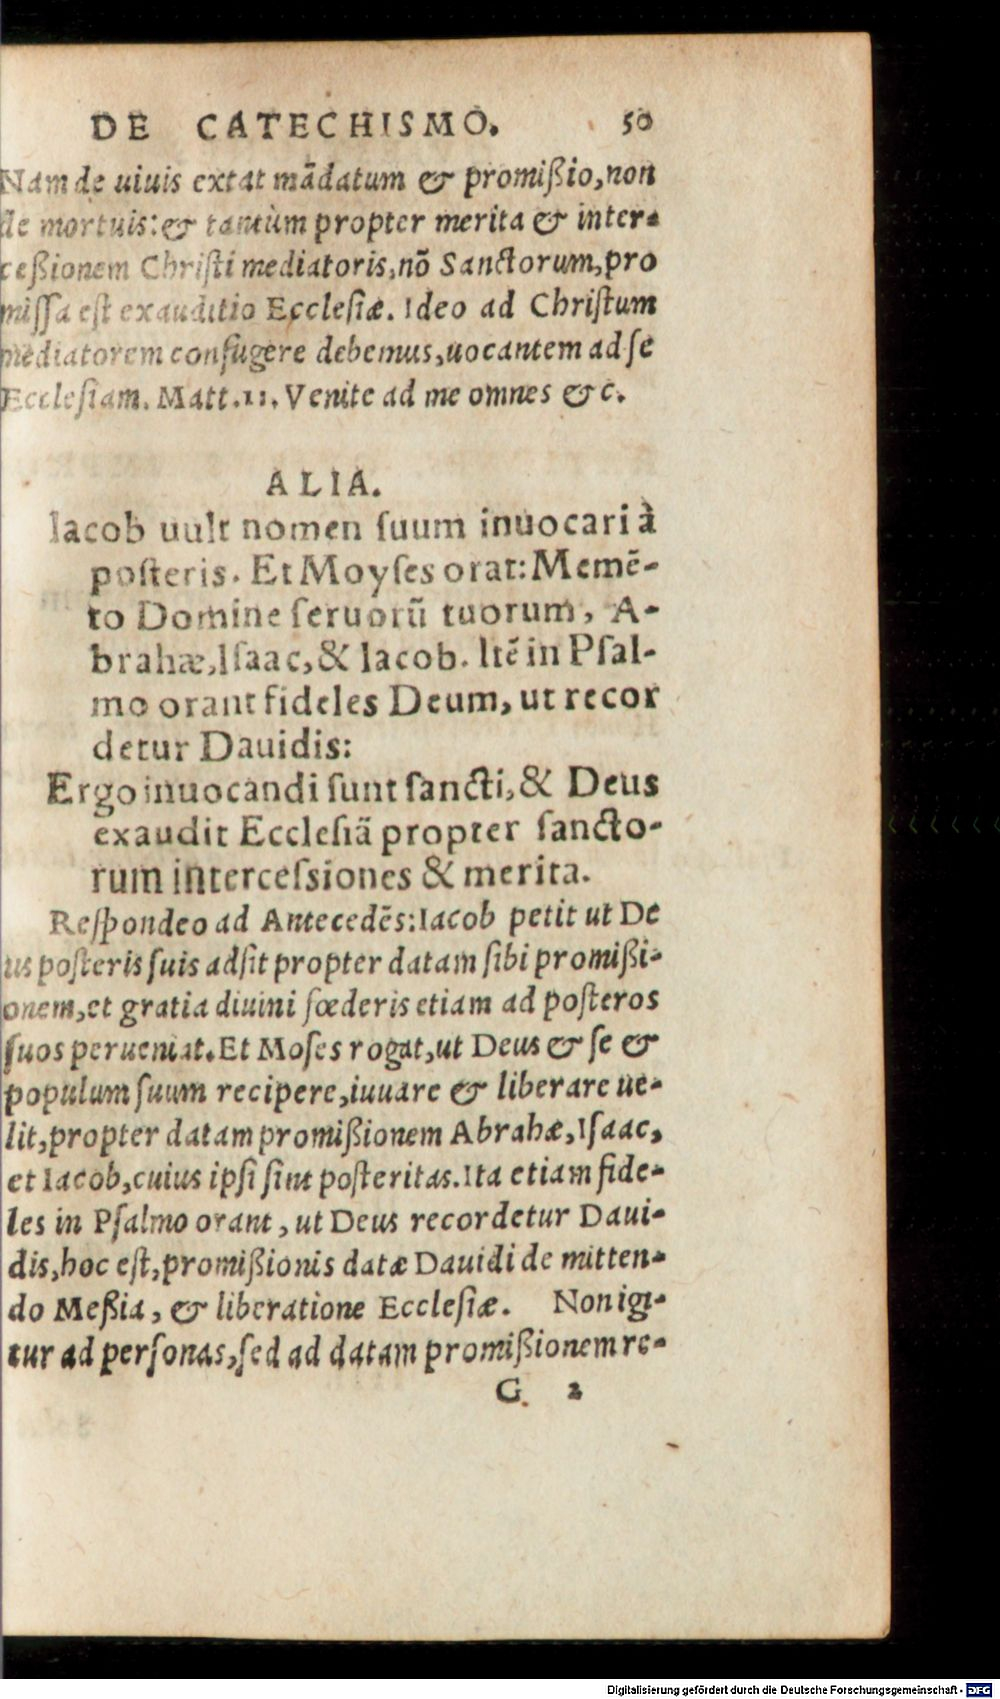 DE CATECHISMO. 50
Nam de uiuis extat mādatum & promißio, non
de mortuis: & tantùm propter merita & inter-
ceßionem Chriſti mediatoris, nō Sanctorum, pro
miſſa eſt exauditio Eccleſiæ. Ideo ad Chriſtum
mediatorem confugere debemus, uocantem ad ſe
Eccleſiam. Matt. 11. Venite ad me omnes &c.
ALIA.
Iacob uult nomen ſuum inuocari à
poſteris. Et Moyſes orat: Memē-
to Domine ſeruorū tuorum, A-
brahæ, Iſaac, & Iacob. Itē in Pſal-
mo orant fideles Deum, ut recor
detur Dauidis:
Ergo inuocandi ſunt ſancti, & Deus
exaudit Eccleſiā propter ſancto-
rum interceſsiones & merita.
Reſpondeo ad Antecedēs: Iacob petit ut De
us poſteris ſuis adſit propter datam ſibi promißi-
onem, et gratia diuini fœderis etiam ad poſteros
ſuos perueniat. Et Moſes rogat, ut Deus & ſe &
populum ſuum recipere, iuuare & liberare ue-
lit, propter datam promißionem Abrahæ, Iſaac,
et Iacob, cuius ipſi ſint poſteritas. Ita etiam fide-
les in Pſalmo orant, ut Deus recordetur Daui-
dis, hoc eſt, promißionis datæ Dauidi de mitten-
do Meßia, & liberatione Eccleſiæ. Non igi-
tur ad perſonas, ſed ad datam promißionem re-
G 2
Digitalisierung gefördert durch die Deutsche Forschungsgemeinschaft - DFG